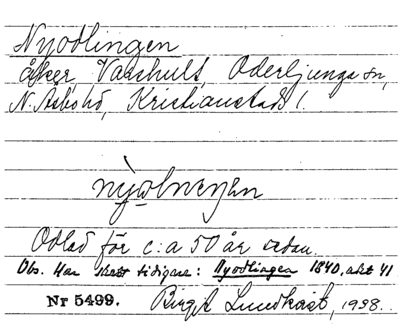 Nyodlingen
åker, Varshult, Oderljunga sn,
N. Åsbo hd, Kristianstads l.
Odlad för c:a 50 år sedan.
Obs. Har skett tidigare: Nyodlingen 1840, akt 41
Nr 5499. Birgit Lundkvist, 1938.